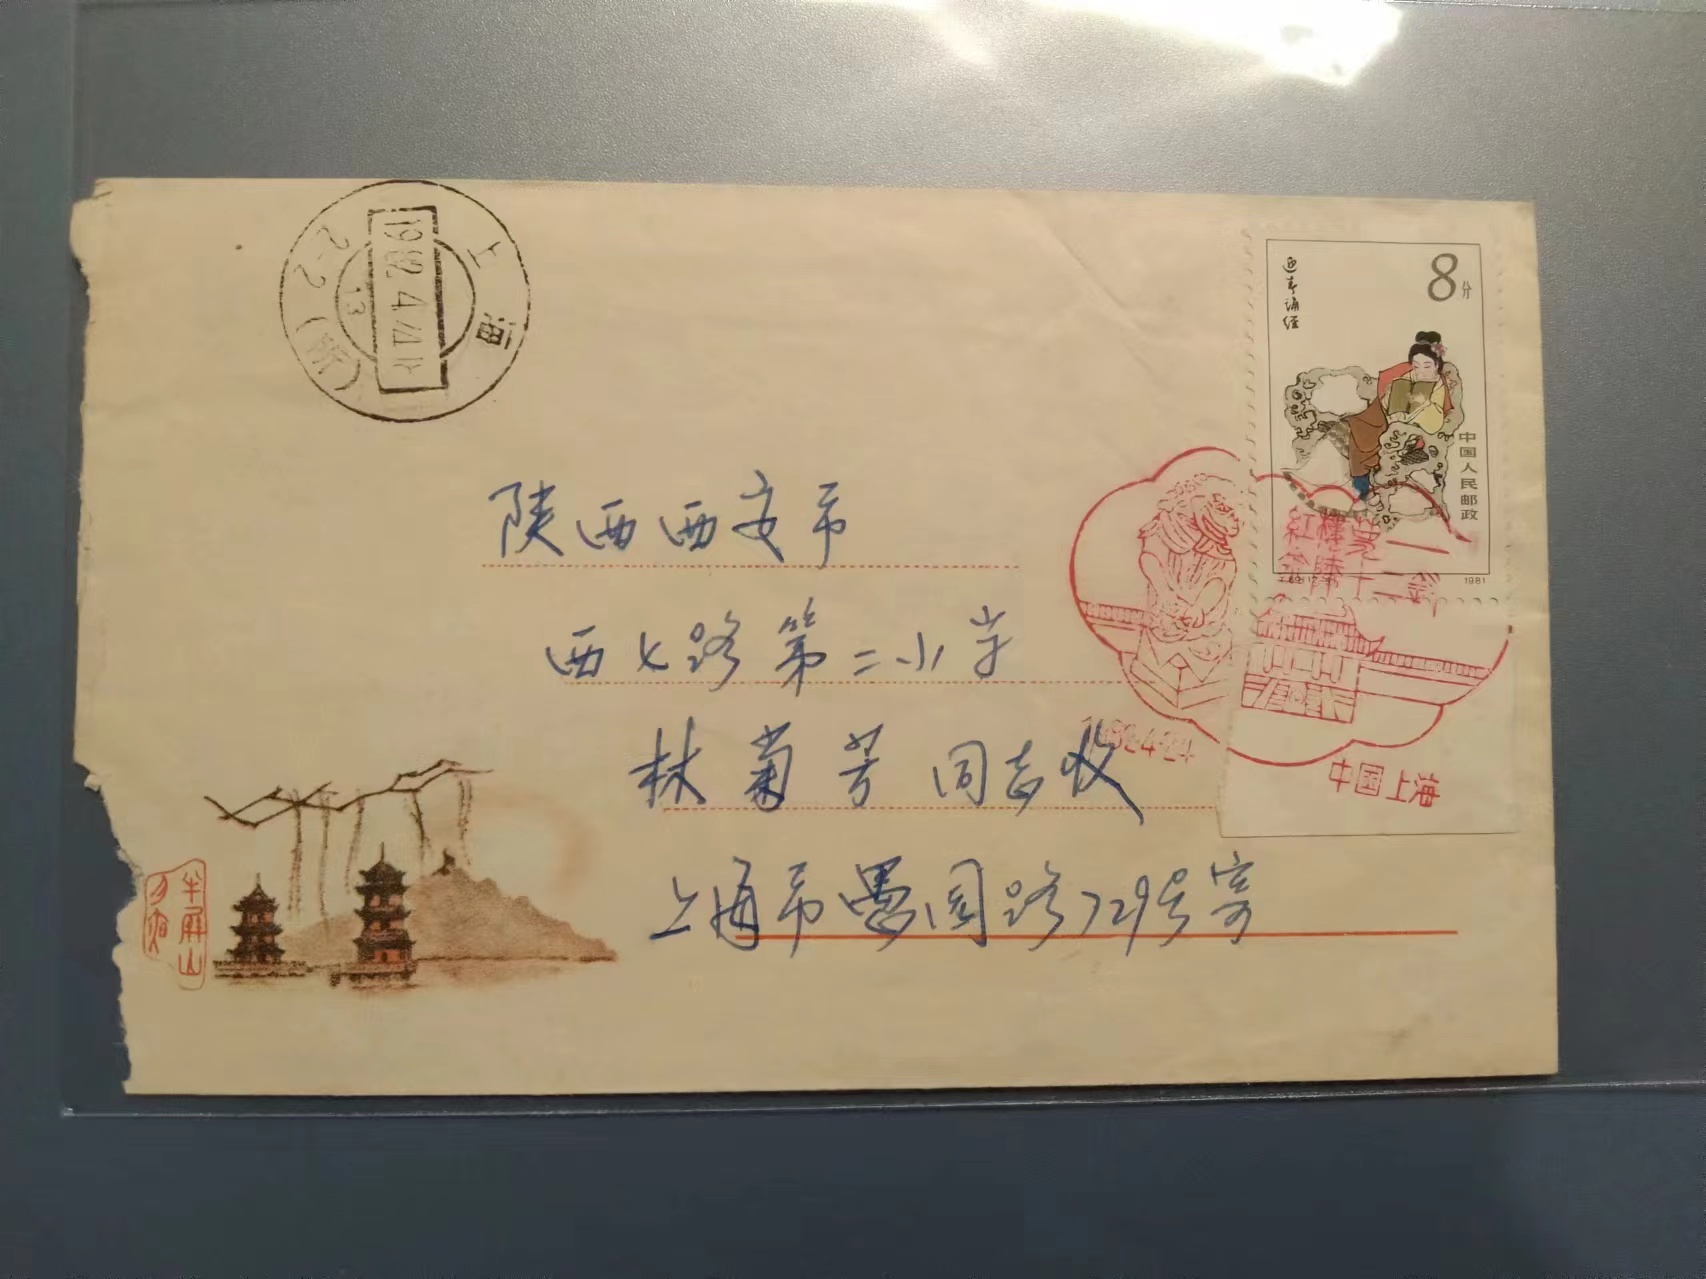 上海
1982.4.21.18
13
2-2(所)
迎春诵经
8分
中国人民邮政
1981
紅樓梦——
金陵十二釵
中国上海
陕西西安市
西七路第二小学
林菊芳同志收
上海市愚园路729号寄
半屏山